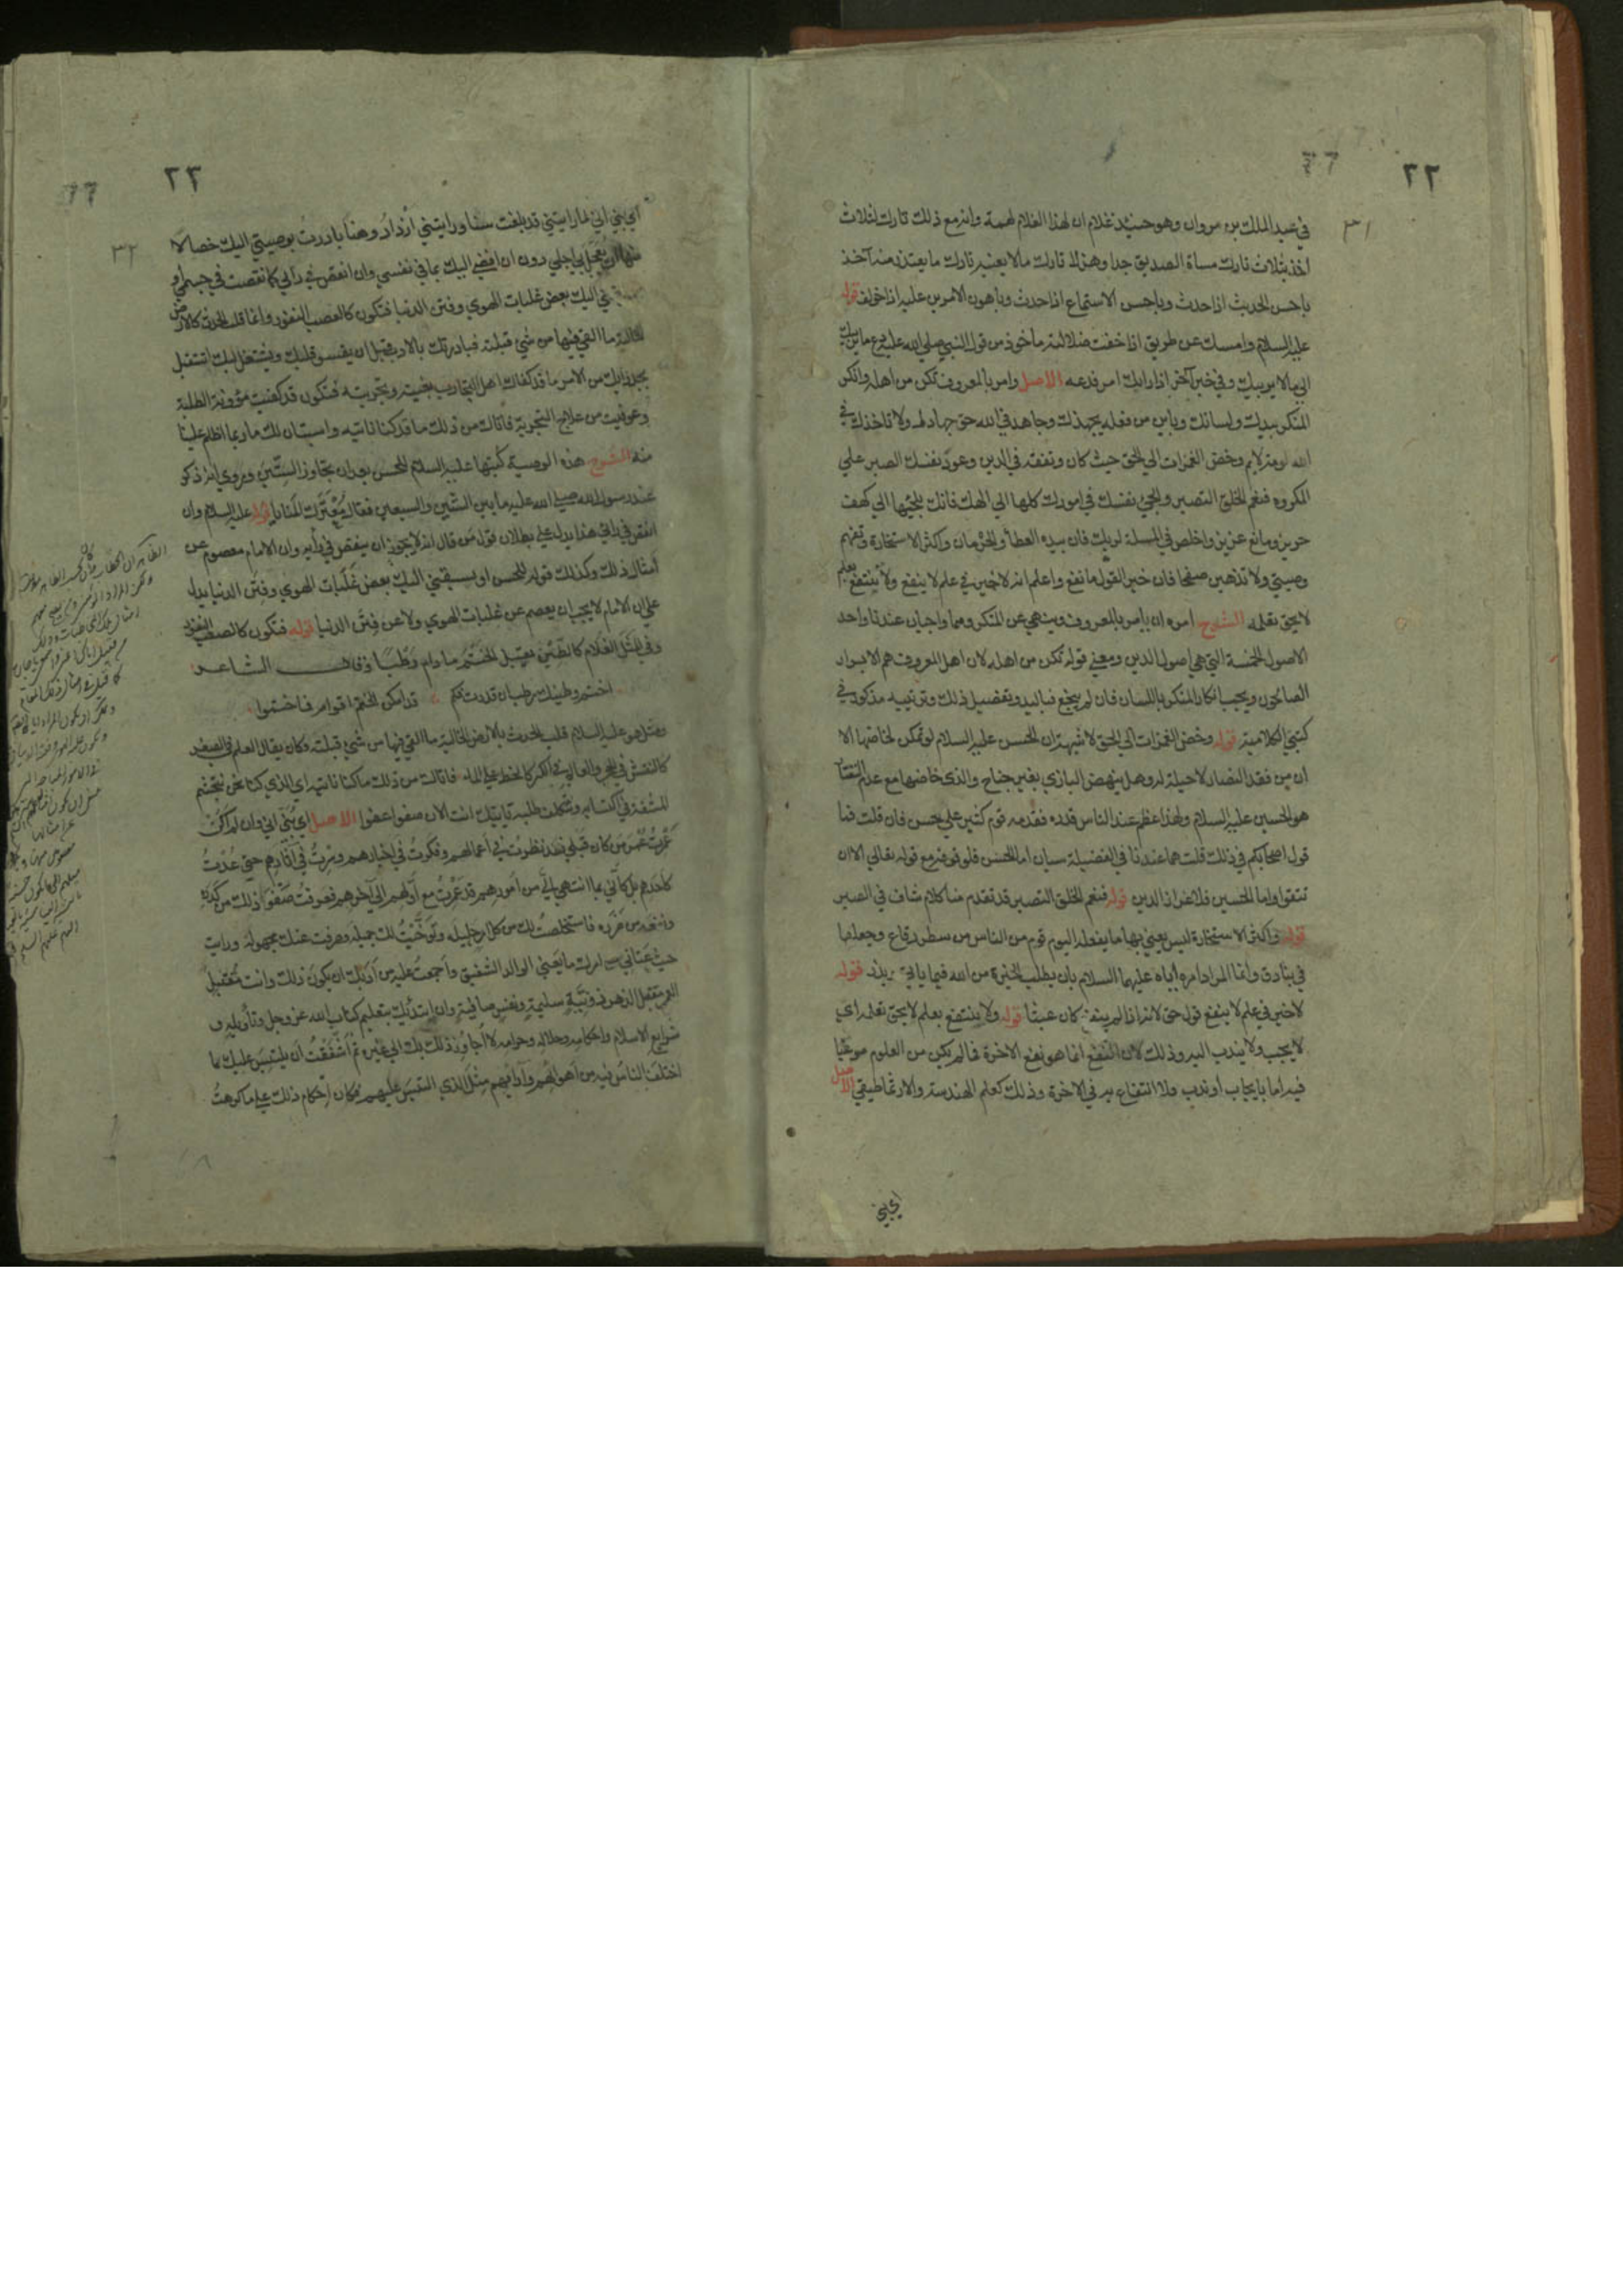 ٢٢
٣١
في عبد الملك بن مروان وهو حينئذ غلام ان لهذا الغلام لهمة وانه مع ذلك تارك لثلاث
اخذ بثلاث تارك مساة الصديق جدا وهزلا تارك مالا يعنيه تارك ما يعتذر منه آخذ
باحسن الحديث اذا حدث وباحسن الاستماع اذا حدث وباهون الامرين عليه اذا خولف قوله
عليه السلام وامسك عن طريق اذا خفت ضلالته ماخوذ من قول النبي صلي الله عليه دع ما يريبك
الي ما لا يريبك وفي خبر آخر اذا رابك امر فدعه الاصل وامر بالمعروف تكن من اهله وانكر
المنكر بيدك ولسانك وباين من فعله بجهدك وجاهد في الله حق جهاده ولا تاخذك في
الله لومة لايم وخض الغمرات الي الحق حيث كان وتفقه في الدين وعود نفسك الصبر علي
المكروه فنعم الخلق التصبر والجئ نفسك في امورك كلها الي الهك فانك تلجئها الي كهف
حريز ومانع عزيز واخلص في المسئلة لربك فان بيده العطأ والحرمان واكثر الاستخارة وتفهم
وصيتي ولا تذهبن صفحا فان خير القول ما نفع واعلم انه لا خير في علم لا ينفع ولا ينتفع بعلم
لا يحق تعلمه الشرح امره ان يامر بالمعروف وينهي عن المنكر وهما واجبان عندنا واحد
الاصول الخمسة التي هي اصول الدين ومعني قوله تكن من اهله لان اهل المعروف هم الابرار
الصالحون ويجب انكار المنكر باللسان فان لم ينجع فباليد وتفصيل ذلك وترتيبه مذكور في
كتبي الكلامية قوله وخض الغمرات الي الحق لا شبهة ان الحسن عليه السلام لو تمكن لخاضها الا
ان من فقد انصاره لا حيلة له وهل ينهض البازي بغير جناح والذي خاضها مع عدم
هو الحسين عليه السلام ولهذا عظم عند الناس قدره فقدمه قوم كثير علي الحسن فان قلت فما
قول اصحابكم في ذلك قلت هما عندنا في الفضيلة سيان اما الحسن فلوقوفه مع قوله تعالي الا ان
تتقوا واما الحسين فلاعزاز الدين قوله فنعم الخلق التصبر قد تقدم منا كلام شاف في الصبر
قوله واكثر الاستخارة ليس يعني بها ما يفعله اليوم قوم من الناس من سطر رقاع وجعلها
في بنادق وانما المراد امره اياه عليهما السلام بان يطلب الخيرة من الله فيما ياتي ويذر قوله
لا خير في علم لا ينفع قول حق لانه اذا لم ينفع كان عبثا قوله ولا ينتفع بعلم لا يحق تعلمه اي
لا يجب ولا يندب اليه وذلك لان النفع انما هو نفع الاخرة فما لم يكن من العلوم مرغبا
فيه اما بايجاب او ندب فلا انتفاع به في الاخرة وذلك كعلم الهندسة والارثماطيقي الاصل
اي بني
٢٣
٣٢
اي بني اني لما رايتني قد بلغت سنا ورايتني ازداد وهنا بادرت بوصيتي اليك خصالا
منها ان يعجل بي اجلي دون ان افضي اليك بما في نفسي وان انقص في رأيي كما نقصت في جسمي او
يسبقني اليك بعض غلبات الهوي وفتن الدنيا فتكون كالصعب النفور وانما قلب الحدث كالارض
الخالية ما القي فيها من شئ قبلته فبادرتك بالادب قبل ان يقسو قلبك ويشتغل لبك لتستقبل
بجد رأيك من الامر ما قد كفاك اهل التجارب بغيته وتجربته فتكون قد كفيت مؤونة الطلب
وعوفيت من علاج التجربة فاتاك من ذلك ما قد كنا ناتيه واستبان لك ما ربما اظلم علينا
منه الشرح هذه الوصية كتبها عليه السلام للحسن بعد ان تجاوز الستين وروي انه ذكر
عند رسول الله صلي الله عليه ما بين الستين والسبعين فقال معترك المنايا قوله عليه السلام وان
انقص في رأيي هذا يدل علي بطلان قول من قال انه لا يجوز ان ينقص في رأيه وان الامام معصوم عن
امثال ذلك وكذلك قوله للحسن او يسبقني اليك بعض غلبات الهوي وفتن الدنيا يدل
علي ان الامام لا يجب ان يعصم عن غلبات الهوي ولا عن فتن الدنيا قوله فتكون كالصعب النفور
وفي المثل الغلام كالطين يقبل الختم ما دام رطبا وقال الشاعر
اختم وطينك رطب ان قدرت فكم قد امكن الختم اقواما فما ختموا
ومثل هو عليه السلام قلب الحدث بالارض الخالية ما القي فيها من شئ قبلته وكان يقال العلم في الصغر
كالنقش في الحجر والعلم في الكبر كالخط علي الماء فاتاك من ذلك ما كنا ناتيه اي الذي كنا نحن نتجشم
المشقة في اكتسابه ونتكلف طلبه ياتيك انت الان صفوا عفوا الاصل اي بني اني وان لم اكن
عمرت عمر من كان قبلي فقد نظرت في اعمالهم وفكرت في اخبارهم وسرت في اثارهم حتي عدت
كاحدهم بل كأني بما انتهي الي من امورهم قد عمرت مع اولهم الي آخرهم فعرفت صفو ذلك من كدره
ونفعه من ضرره فاستخلصت لك من كل امر جليله وتوخيت لك جميله وصرفت عنك مجهوله ورايت
حيث عناني من امرك ما يعني الوالد الشفيق واجمعت عليه من ادبك ان يكون ذلك وانت مقبل
العمر مقتبل الدهر ذو نية سليمة ونفس صافية وان ابتدئك بتعليم كتاب الله عز وجل وتأويله و
شرايع الاسلام واحكامه وحلاله وحرامه لا اجاوز ذلك بك الي غيره ثم اشفقت ان يلتبس عليك ما
اختلف الناس فيه من اهوائهم وآرائهم مثل الذي التبس عليهم فكان احكام ذلك علي ما كرهت